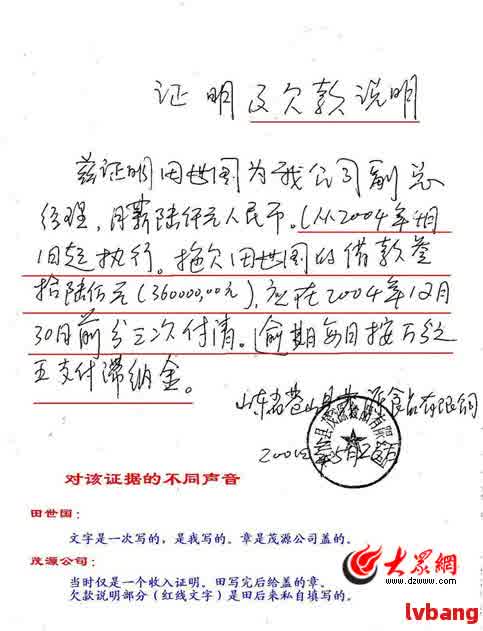 证明及欠款说明
兹证明田世国为我公司副总
经理，月薪陆仟元人民币。（从2004年4月
1日起执行。拖欠田世国的借款叁
拾陆万元（360000.00元），应在2004年12月
30日前分三次付清。逾期每日按万分之
五支付滞纳金。
山东省苍山县茂源食品有限公司
对该证据的不同声音
田世国：
文字是一次写的，是我写的。章是茂源公司盖的。
茂源公司：
当时仅是一个收入证明。田写完后给盖的章。
欠款说明部分（红线文字）是田后来私自填写的。
大众網
www.dzwww.com
lvbang